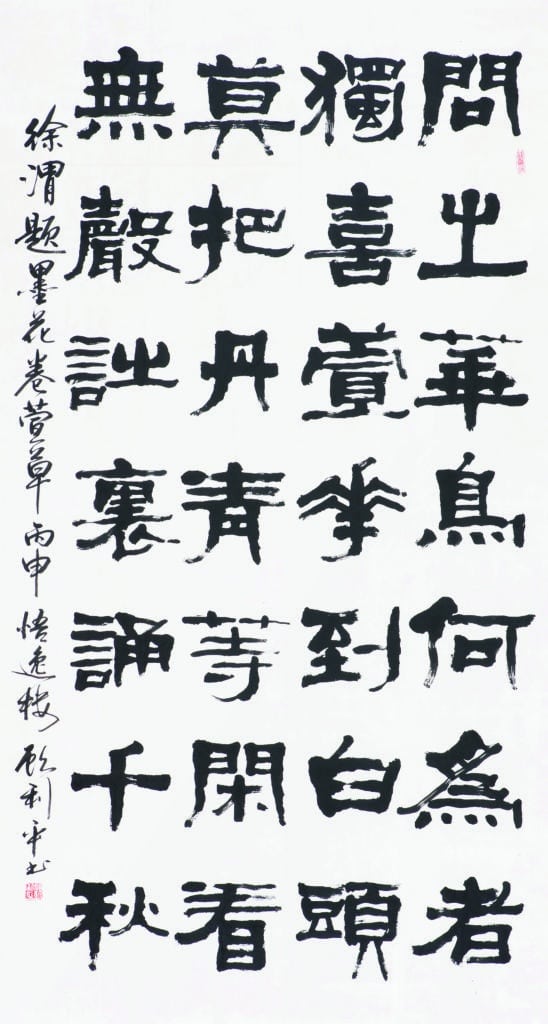 問之華鳥何為者
獨喜萱花到白頭
莫把丹青等閑看
無聲詩裏誦千秋
徐渭题墨花卷萱草 丙申 悟逸楼 顾利平书